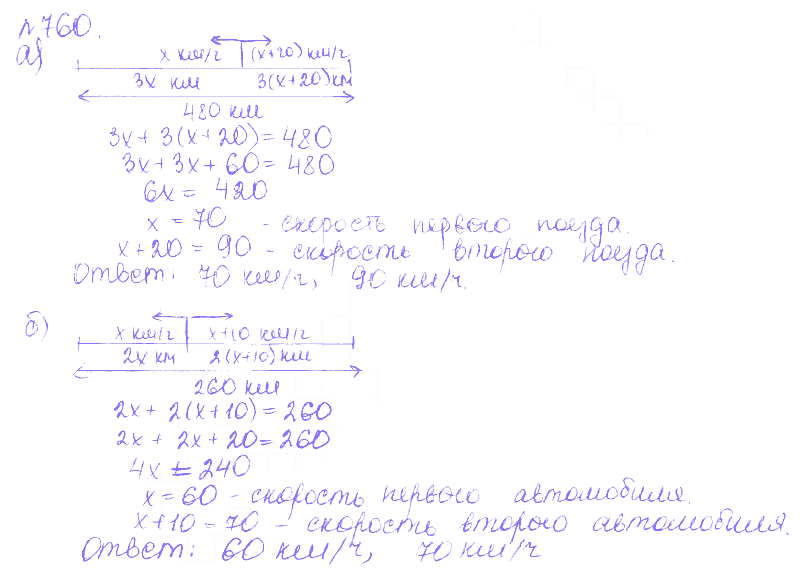 №760.
а)
x км/г (x+20) км/г
3x км 3(x+20) км
480 км
3x + 3(x+20) = 480
3x + 3x + 60 = 480
6x = 420
x = 70 - скорость первого поезда.
x+20 = 90 - скорость второго поезда.
Ответ: 70 км/г, 90 км/ч.
б)
x км/г x+10 км/г
2x км 2(x+10) км
260 км
2x + 2(x+10) = 260
2x + 2x + 20 = 260
4x = 240
x = 60 - скорость первого автомобиля.
x+10 = 70 - скорость второго автомобиля.
Ответ: 60 км/ч, 70 км/ч